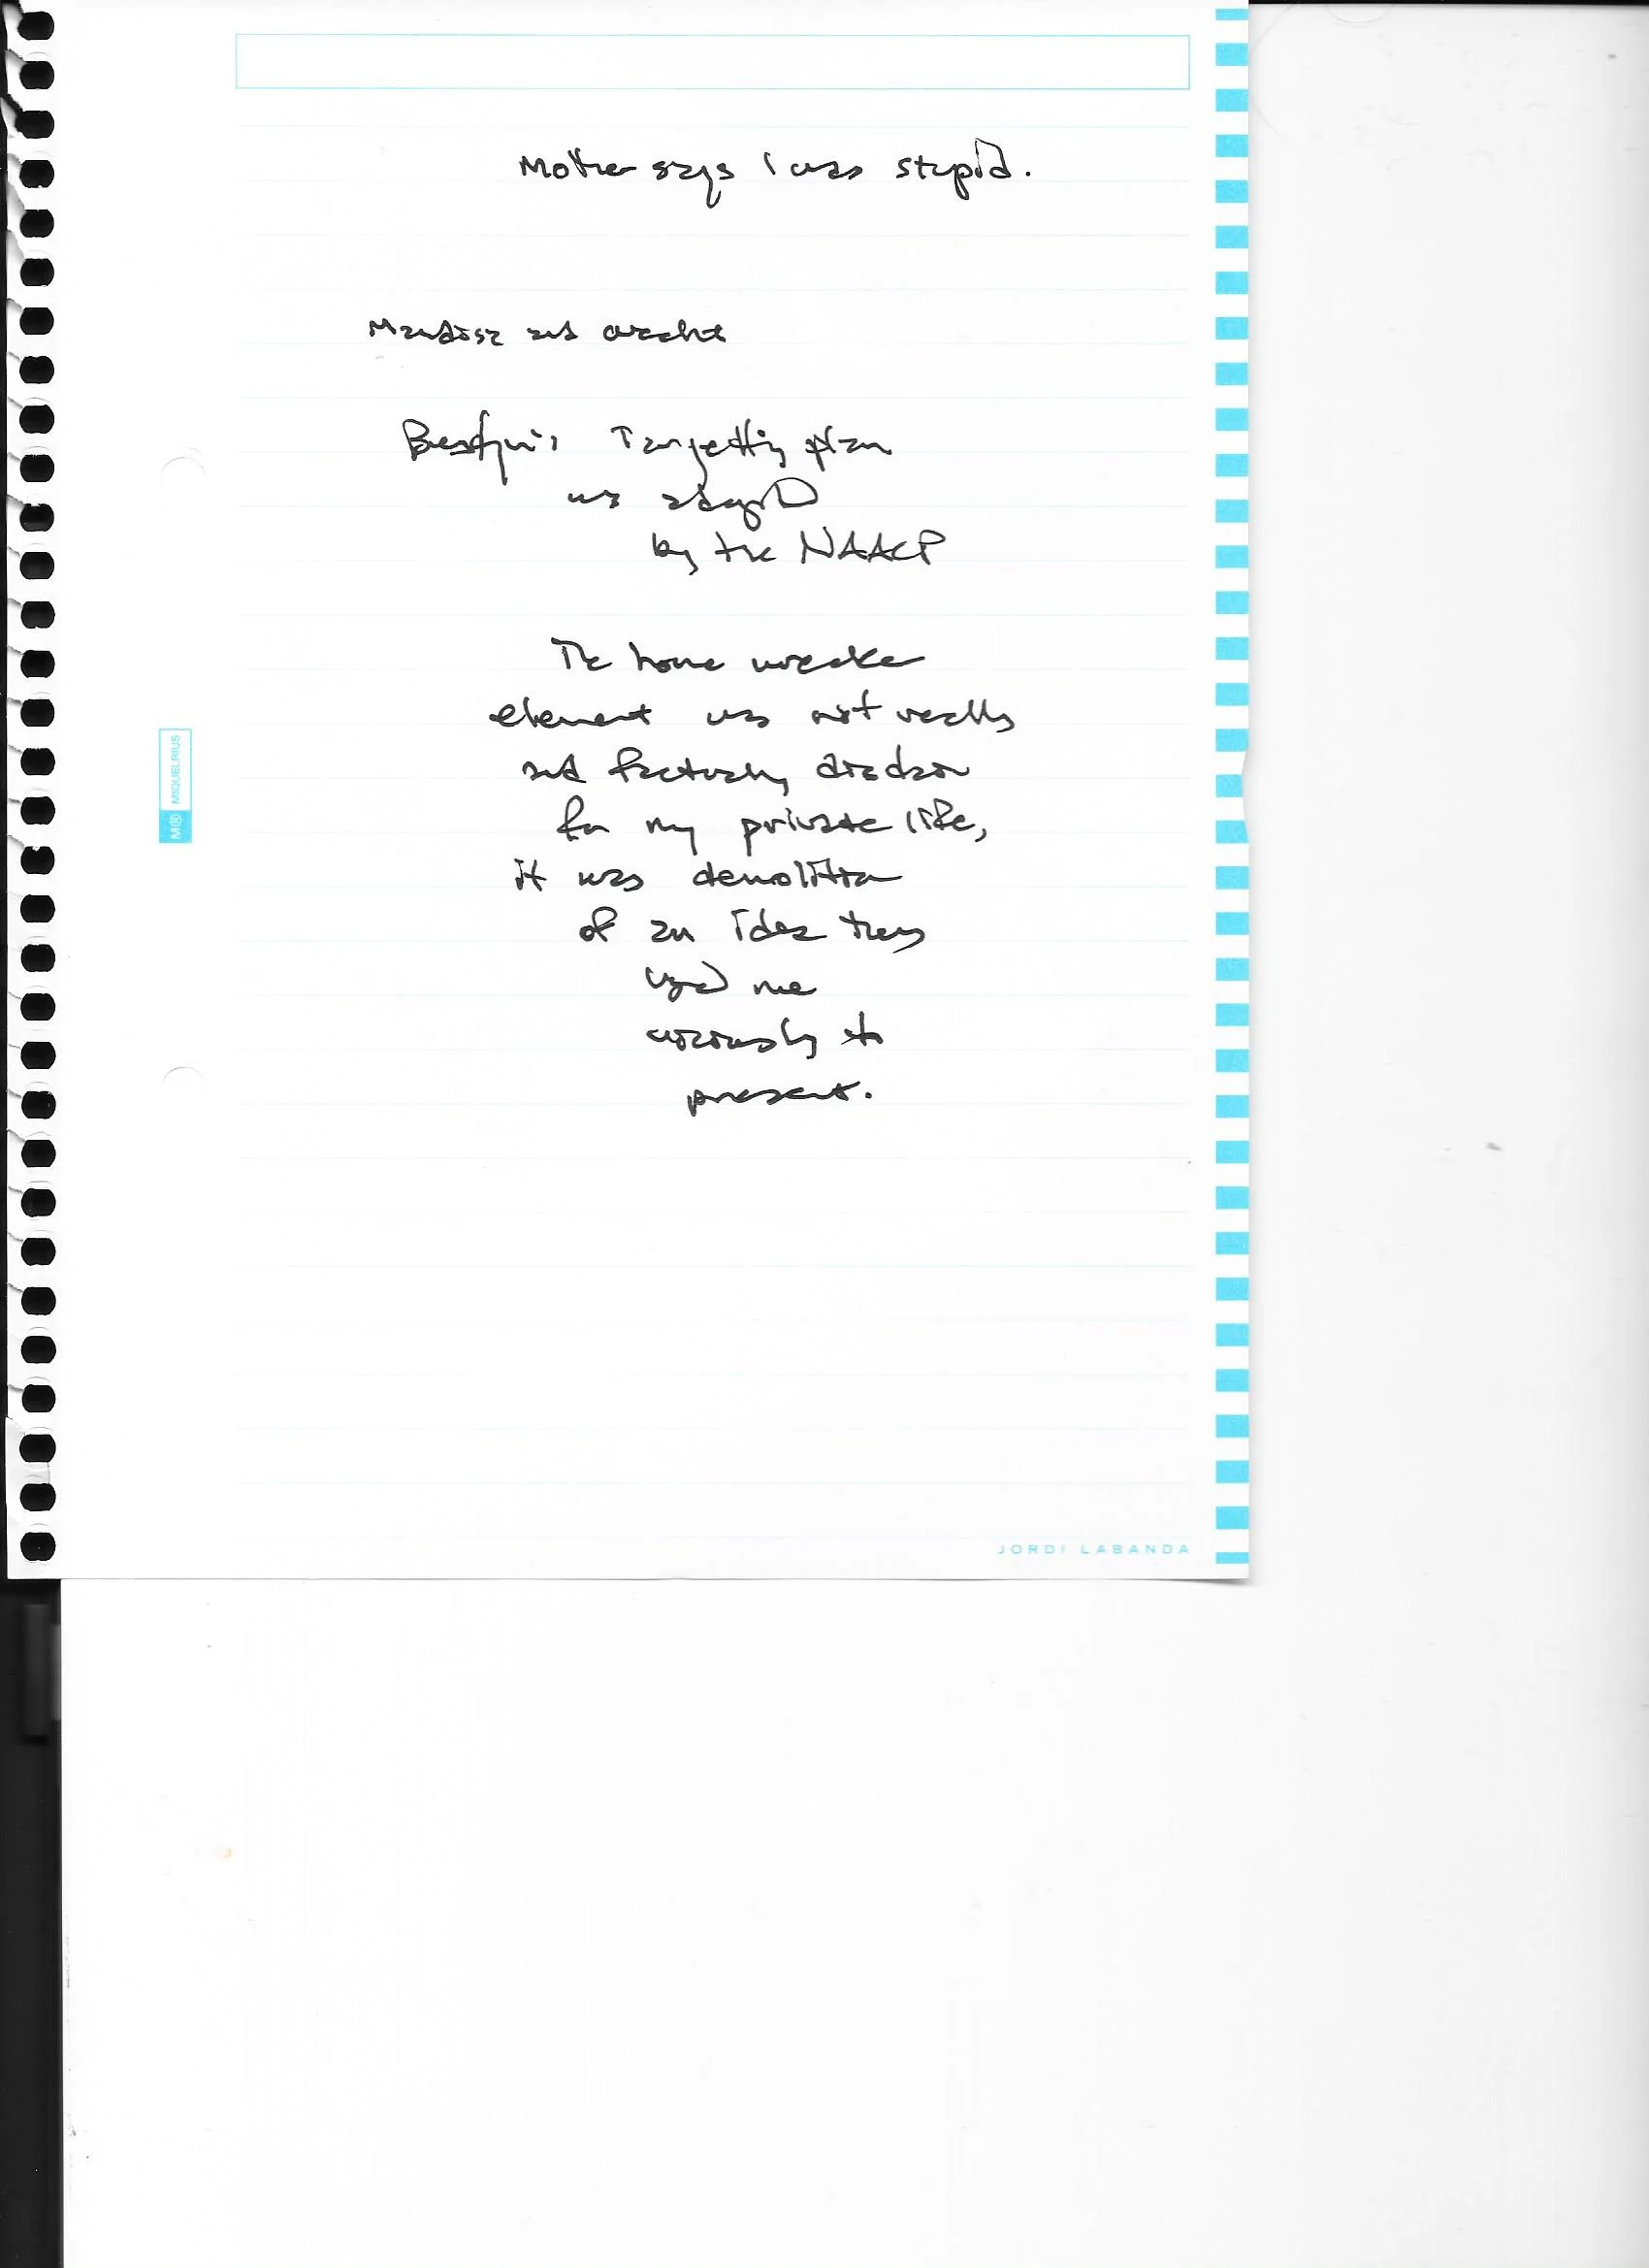 Mother says I was stupid.
Mandisa and
Targetting plan
was
by the NAACP
The home wrecker
element was not really
and factually
for my private life,
it was demolition
of an idea they
used me
viciously to
present.
M® MIQUELRIUS
JORDI LABANDA